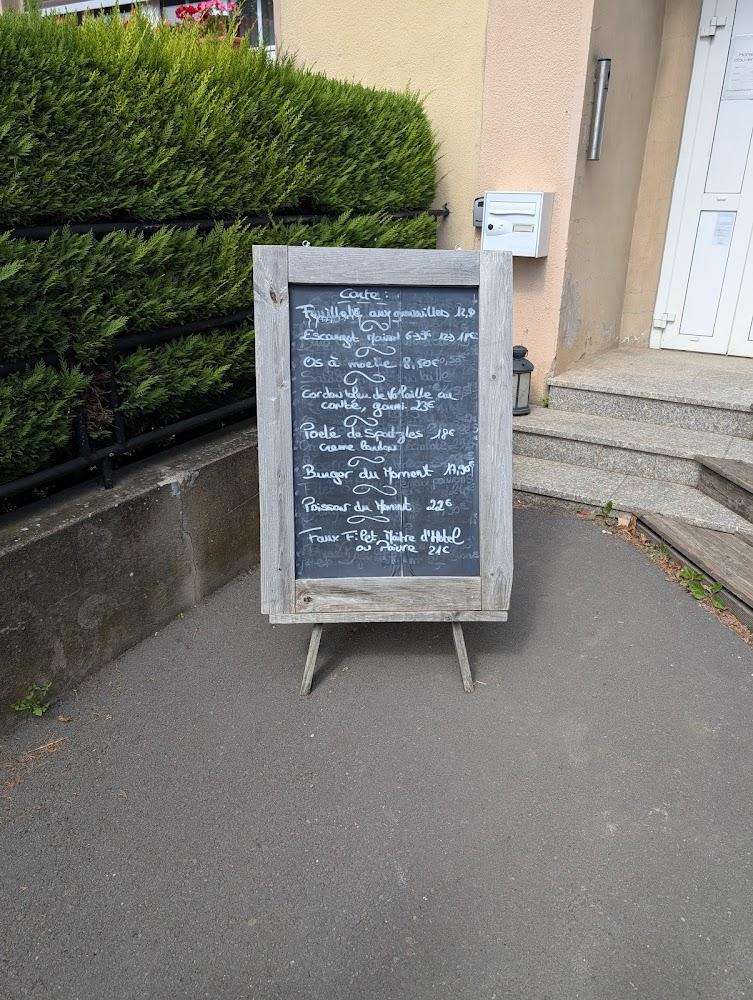 Carte :
Feuilleté aux grenailles 12,9
Escargot Maison 6:9€ 12:17€
Os à moelle 8,50€
Cordon bleu de Volaille au
comté, garni 23€
Poêlé de Spatzles 18€
creme lardons
Burger du Moment 17,90€
Poisson du Moment 22€
Faux Filet Maitre d'Hôtel
ou Poivre 21€